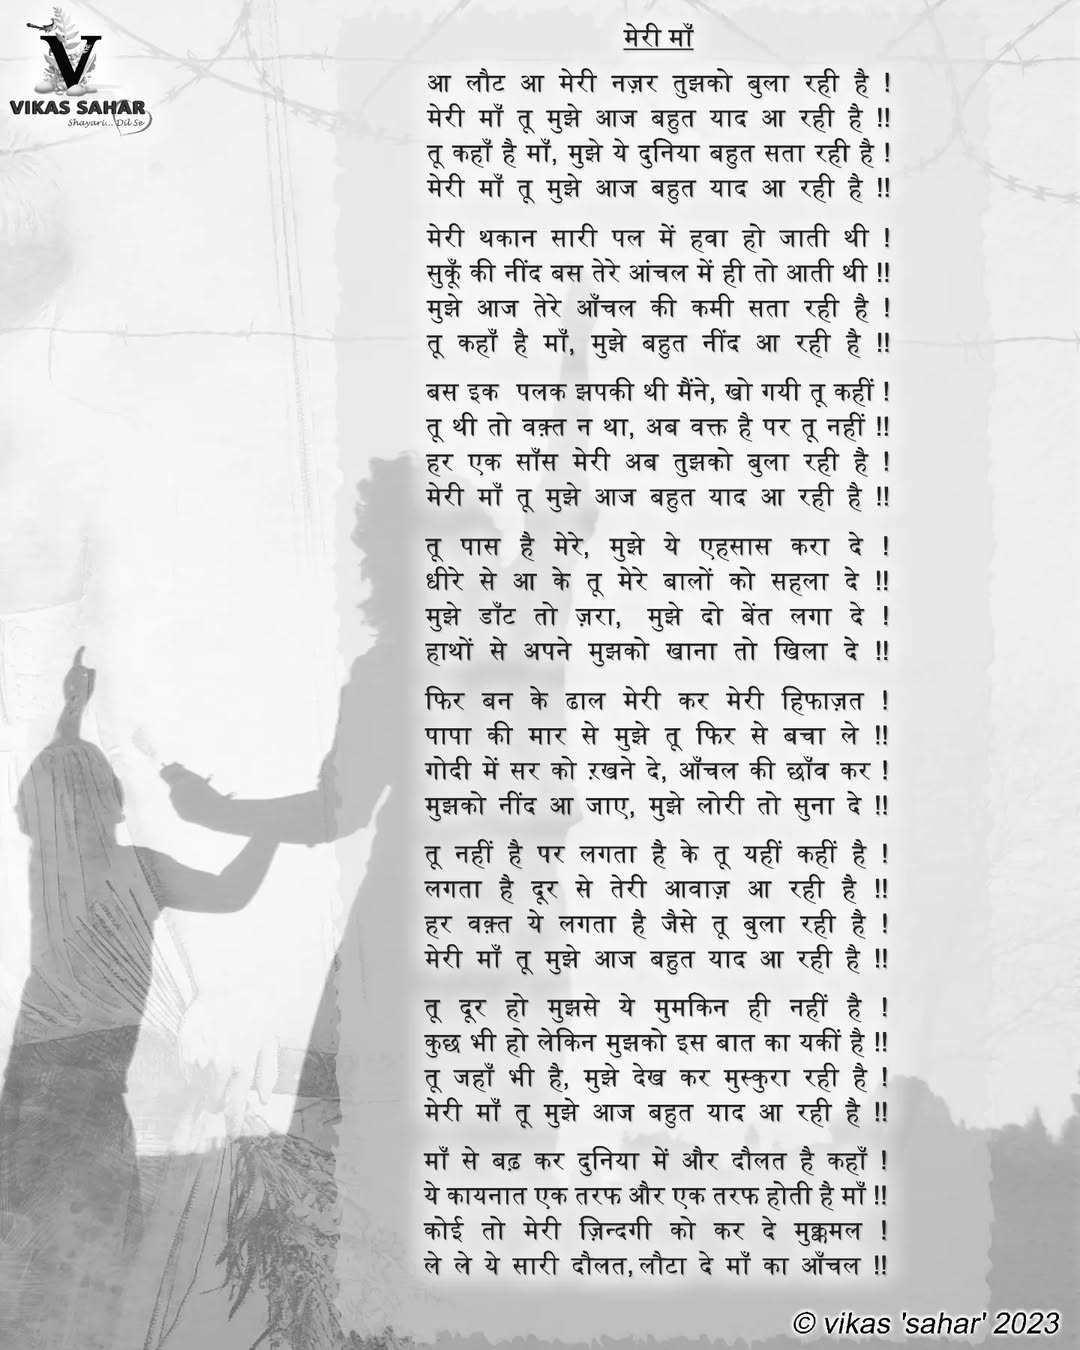 V
VIKAS SAHAR
Shayari... Dil Se
मेरी माँ
आ लौट आ मेरी नज़र तुझको बुला रही है !
मेरी माँ तू मुझे आज बहुत याद आ रही है !!
तू कहाँ है माँ, मुझे ये दुनिया बहुत सता रही है !
मेरी माँ तू मुझे आज बहुत याद आ रही है !!
मेरी थकान सारी पल में हवा हो जाती थी !
सुकूँ की नींद बस तेरे आंचल में ही तो आती थी !!
मुझे आज तेरे आँचल की कमी सता रही है !
तू कहाँ है माँ, मुझे बहुत नींद आ रही है !!
बस इक पलक झपकी थी मैंने, खो गयी तू कहीं !
तू थी तो वक़्त न था, अब वक्त है पर तू नहीं !!
हर एक साँस मेरी अब तुझको बुला रही है !
मेरी माँ तू मुझे आज बहुत याद आ रही है !!
तू पास है मेरे, मुझे ये एहसास करा दे !
धीरे से आ के तू मेरे बालों को सहला दे !!
मुझे डाँट तो ज़रा, मुझे दो बेंत लगा दे !
हाथों से अपने मुझको खाना तो खिला दे !!
फिर बन के ढाल मेरी कर मेरी हिफाज़त !
पापा की मार से मुझे तू फिर से बचा ले !!
गोदी में सर को ऱखने दे, आँचल की छाँव कर !
मुझको नींद आ जाए, मुझे लोरी तो सुना दे !!
तू नहीं है पर लगता है के तू यहीं कहीं है !
लगता है दूर से तेरी आवाज़ आ रही है !!
हर वक़्त ये लगता है जैसे तू बुला रही है !
मेरी माँ तू मुझे आज बहुत याद आ रही है !!
तू दूर हो मुझसे ये मुमकिन ही नहीं है !
कुछ भी हो लेकिन मुझको इस बात का यकीं है !!
तू जहाँ भी है, मुझे देख कर मुस्कुरा रही है !
मेरी माँ तू मुझे आज बहुत याद आ रही है !!
माँ से बढ़ कर दुनिया में और दौलत है कहाँ !
ये कायनात एक तरफ और एक तरफ होती है माँ !!
कोई तो मेरी ज़िन्दगी को कर दे मुक्कमल !
ले ले ये सारी दौलत, लौटा दे माँ का आँचल !!
© vikas 'sahar' 2023